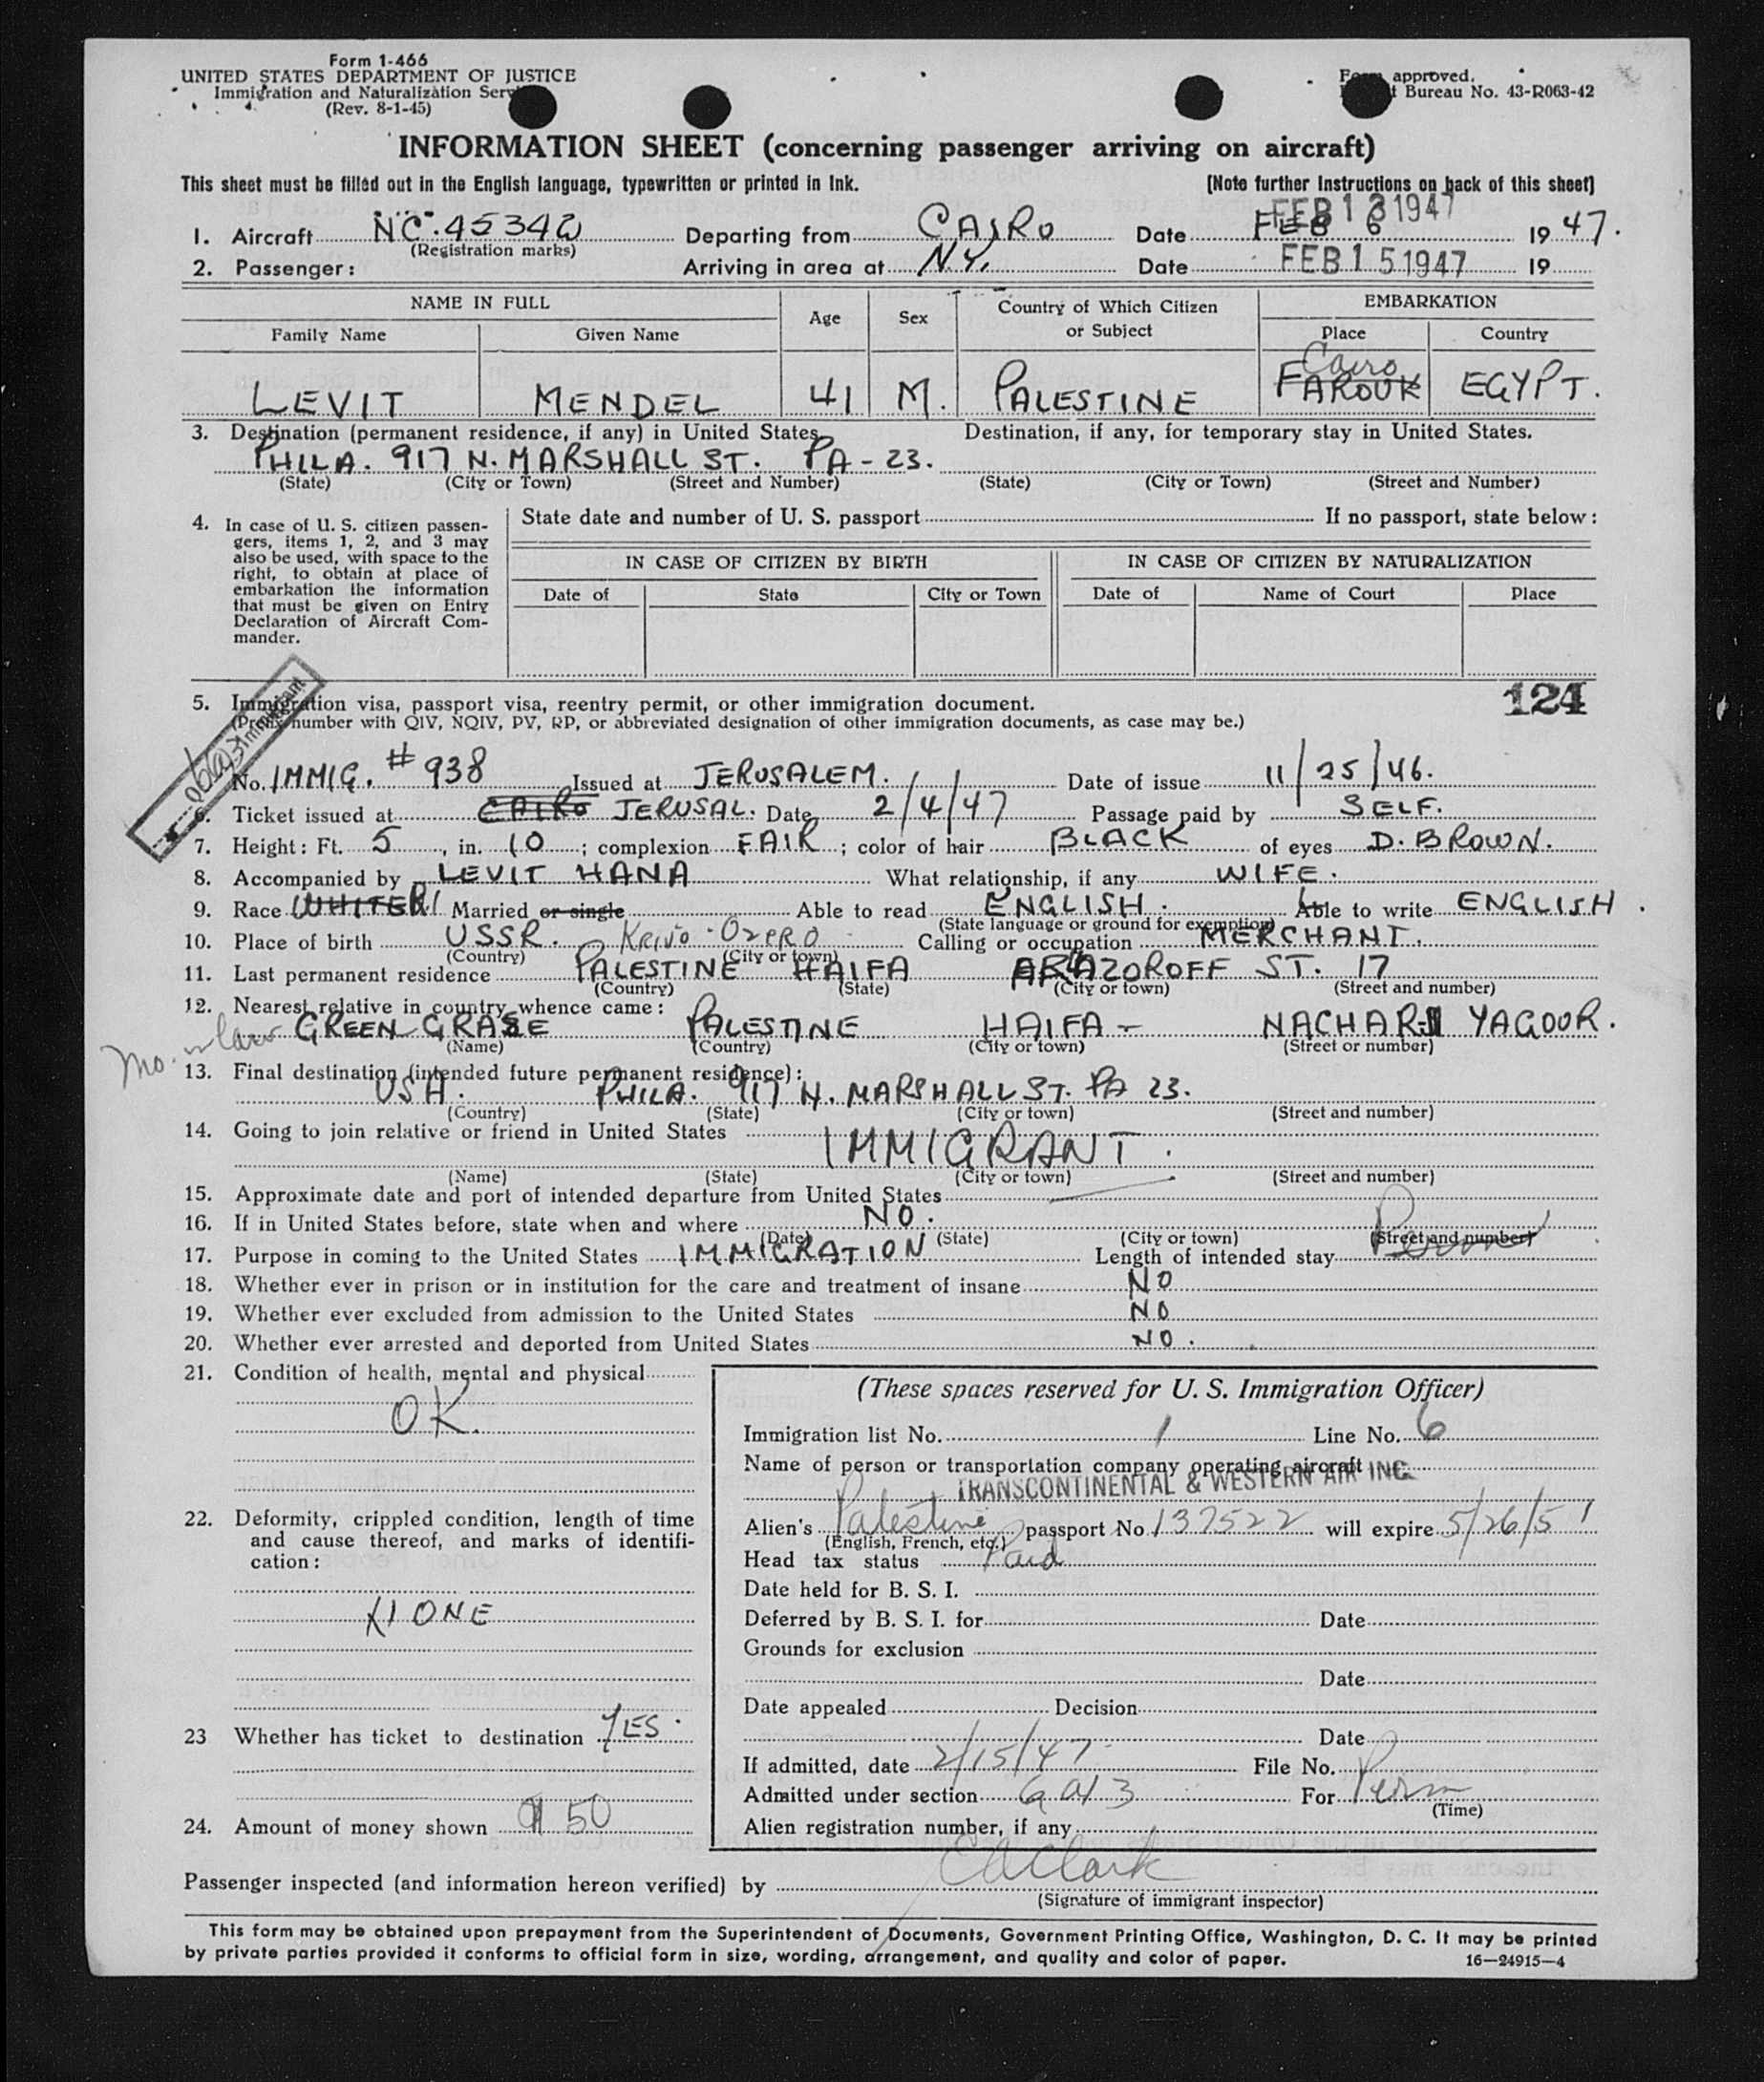 Form 1-466
UNITED STATES DEPARTMENT OF JUSTICE
Immigration and Naturalization
(Rev. 8-1-45)
approved.
Bureau No. 43-R063-42
INFORMATION SHEET (concerning passenger arriving on aircraft)
This sheet must be filled out in the English language, typewritten or printed in Ink. (Note further Instructions on back of this sheet)
FEB 13 1947
1. Aircraft NC. 45342 Departing from CAIRO Date FEB 6 1947.
(Registration marks)
2. Passenger: Arriving in area at N.Y. Date FEB 15 1947 19
NAME IN FULL Age Sex Country of Which Citizen or Subject EMBARKATION
Family Name Given Name Place Country
Cairo
LEVIT MENDEL 41 M. PALESTINE FAROUK EGYPT.
3. Destination (permanent residence, if any) in United States Destination, if any, for temporary stay in United States.
PHILA. 917 N. MARSHALL ST. PA - 23.
(State) (City or Town) (Street and Number) (State) (City or Town) (Street and Number)
4. In case of U. S. citizen passen-
gers, items 1, 2, and 3 may
also be used, with space to the
right, to obtain at place of
embarkation the information
that must be given on Entry
Declaration of Aircraft Com-
mander.
State date and number of U. S. passport If no passport, state below:
IN CASE OF CITIZEN BY BIRTH IN CASE OF CITIZEN BY NATURALIZATION
Date of State City or Town Date of Name of Court Place
124
5. Immigration visa, passport visa, reentry permit, or other immigration document.
(Prefix number with QIV, NQIV, PV, RP, or abbreviated designation of other immigration documents, as case may be.)
Immigrant
No. IMMIG. # 938 Issued at JERUSALEM. Date of issue 11/25/46.
6. Ticket issued at CAIRO JERUSAL. Date 2/4/47 Passage paid by SELF.
7. Height: Ft. 5, in. 10; complexion FAIR; color of hair BLACK of eyes D. BROWN.
8. Accompanied by LEVIT HANA What relationship, if any WIFE.
9. Race WHITE Married or single Able to read ENGLISH. Able to write ENGLISH.
(State language or ground for exemption)
10. Place of birth USSR. KRIVO-OZERO Calling or occupation MERCHANT.
(Country) (City or town)
11. Last permanent residence PALESTINE HAIFA ARLAZOROFF ST. 17
(Country) (State) (City or town) (Street and number)
12. Nearest relative in country whence came:
Mo. in law GREEN GRASE PALESTINE HAIFA - NACHAR YAGOOR.
(Name) (Country) (City or town) (Street or number)
13. Final destination (intended future permanent residence):
USA. PHILA. 917 N. MARSHALL ST. PA 23.
(Country) (State) (City or town) (Street and number)
14. Going to join relative or friend in United States
IMMIGRANT.
(Name) (State) (City or town) (Street and number)
15. Approximate date and port of intended departure from United States
16. If in United States before, state when and where NO.
(Date) (State) (City or town) (Street and number)
17. Purpose in coming to the United States IMMIGRATION Length of intended stay Perm
18. Whether ever in prison or in institution for the care and treatment of insane NO
19. Whether ever excluded from admission to the United States NO
20. Whether ever arrested and deported from United States NO.
21. Condition of health, mental and physical
OK.
22. Deformity, crippled condition, length of time
and cause thereof, and marks of identifi-
cation:
NONE
23 Whether has ticket to destination YES.
24. Amount of money shown $ 50
(These spaces reserved for U. S. Immigration Officer)
Immigration list No. 1 Line No. 6
Name of person or transportation company operating aircraft
TRANSCONTINENTAL & WESTERN AIR INC.
Alien's Palestine passport No. 137522 will expire 5/26/51
(English, French, etc.)
Head tax status Paid
Date held for B. S. I.
Deferred by B. S. I. for Date
Grounds for exclusion
Date
Date appealed Decision
Date
If admitted, date 2/15/47. File No.
Admitted under section 6 a 3 For Perm
(Time)
Alien registration number, if any
Passenger inspected (and information hereon verified) by CA Clark
(Signature of immigrant inspector)
This form may be obtained upon prepayment from the Superintendent of Documents, Government Printing Office, Washington, D. C. It may be printed
by private parties provided it conforms to official form in size, wording, arrangement, and quality and color of paper. 16—24915—4